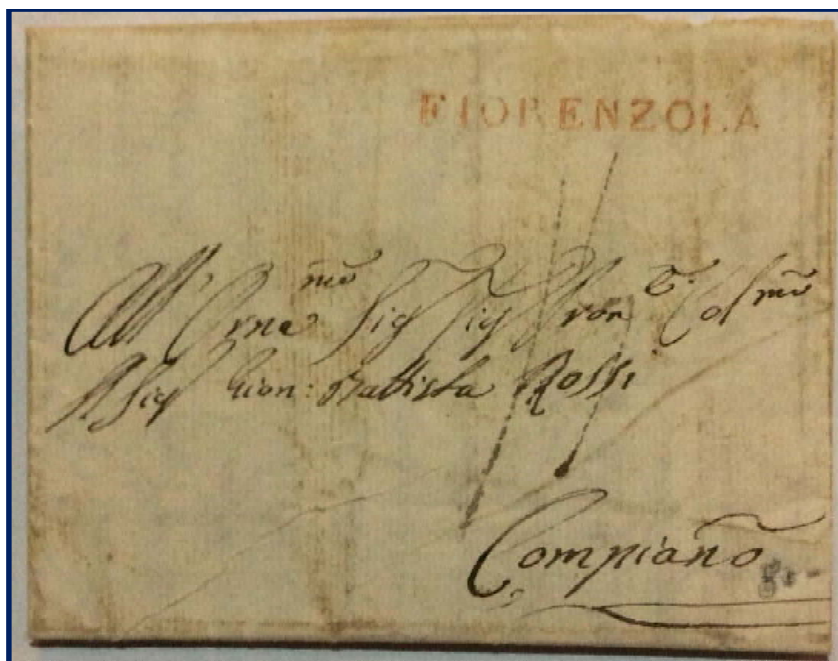 FIORENZOLA
All' Orna^mo Sig^r Sig^r Pron^e Col^mo
Il Sig^r Gion: Battista Rossi
Compiano